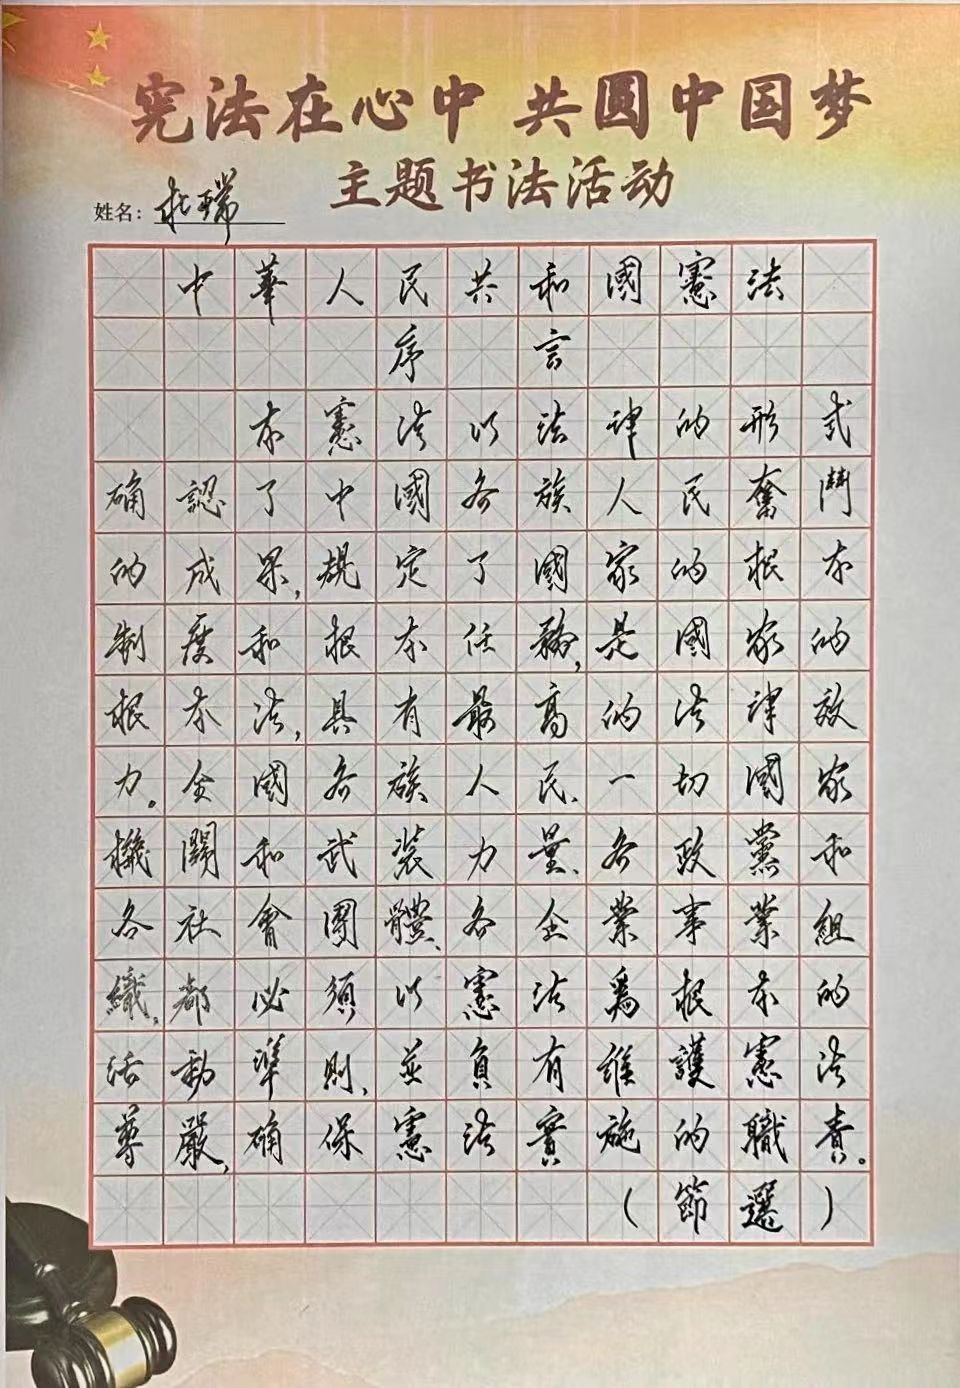 宪法在心中 共圆中国梦
主题书法活动
姓名：杜瑞
中華人民共和國憲法
序言
本憲法以法律的形式
确認了中國各族人民奮鬥
的成果，規定了國家的根本
制度和根本任務，是國家的
根本法，具有最高的法律效
力。全國各族人民、一切國家
機關和武裝力量、各政黨和
各社會團體、各企業事業組
織，都必須以憲法爲根本的
活動準則，並負有維護憲法
尊嚴，确保憲法實施的職責。
（節選）